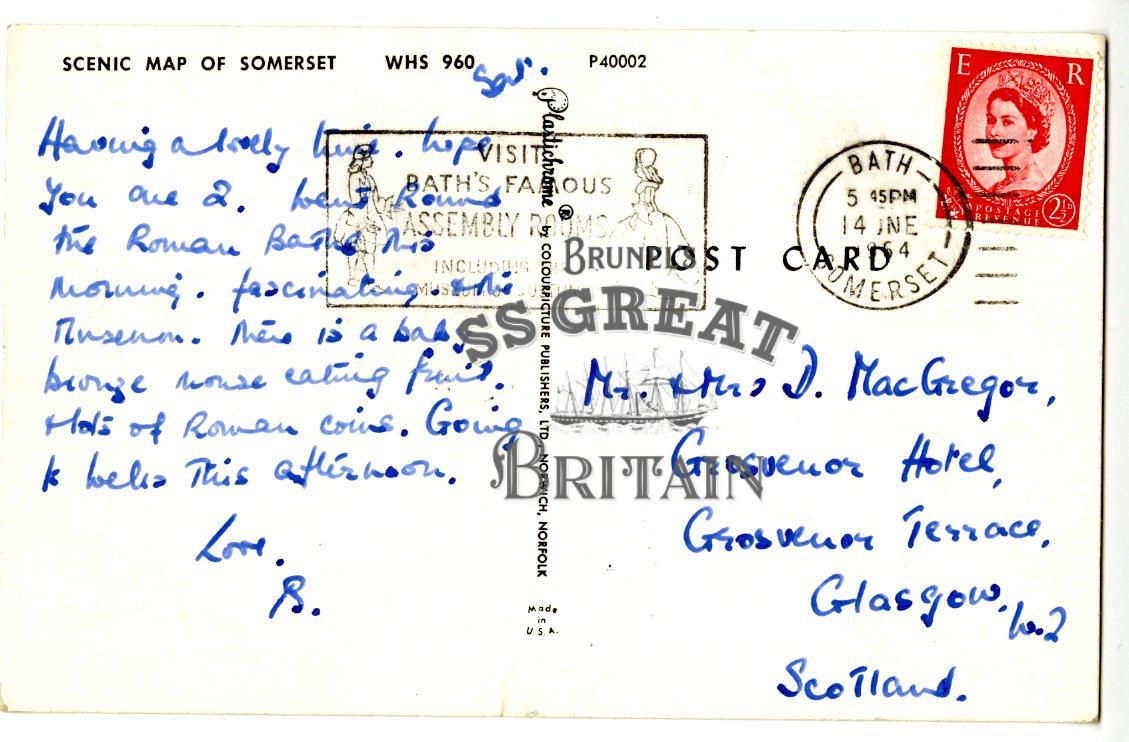 SCENIC MAP OF SOMERSET WHS 960 P40002
Sat.
Having a lovely time. hope
you are 2. Went Round
the Roman Baths this
morning. fascinating. & the
Museum. There is a baby
bronze mouse eating fruit.
& lots of Roman coins. Going
to Wells This afternoon.
Love.
B.
VISIT
BATH'S FAMOUS
ASSEMBLY ROOMS
INCLUDING
MUSEUM OF
Plastichrome ® by COLOURPICTURE PUBLISHERS, LTD. NORWICH, NORFOLK
Made
in
U.S.A.
E R
POSTAGE
REVENUE
2½D
BATH
5 45PM
14 JNE
1964
SOMERSET
POST CARD
BRUNEL'S
SS GREAT
BRITAIN
Mr. & Mrs D. MacGregor,
Grosvenor Hotel,
Grosvenor Terrace,
Glasgow. W.2
Scotland.